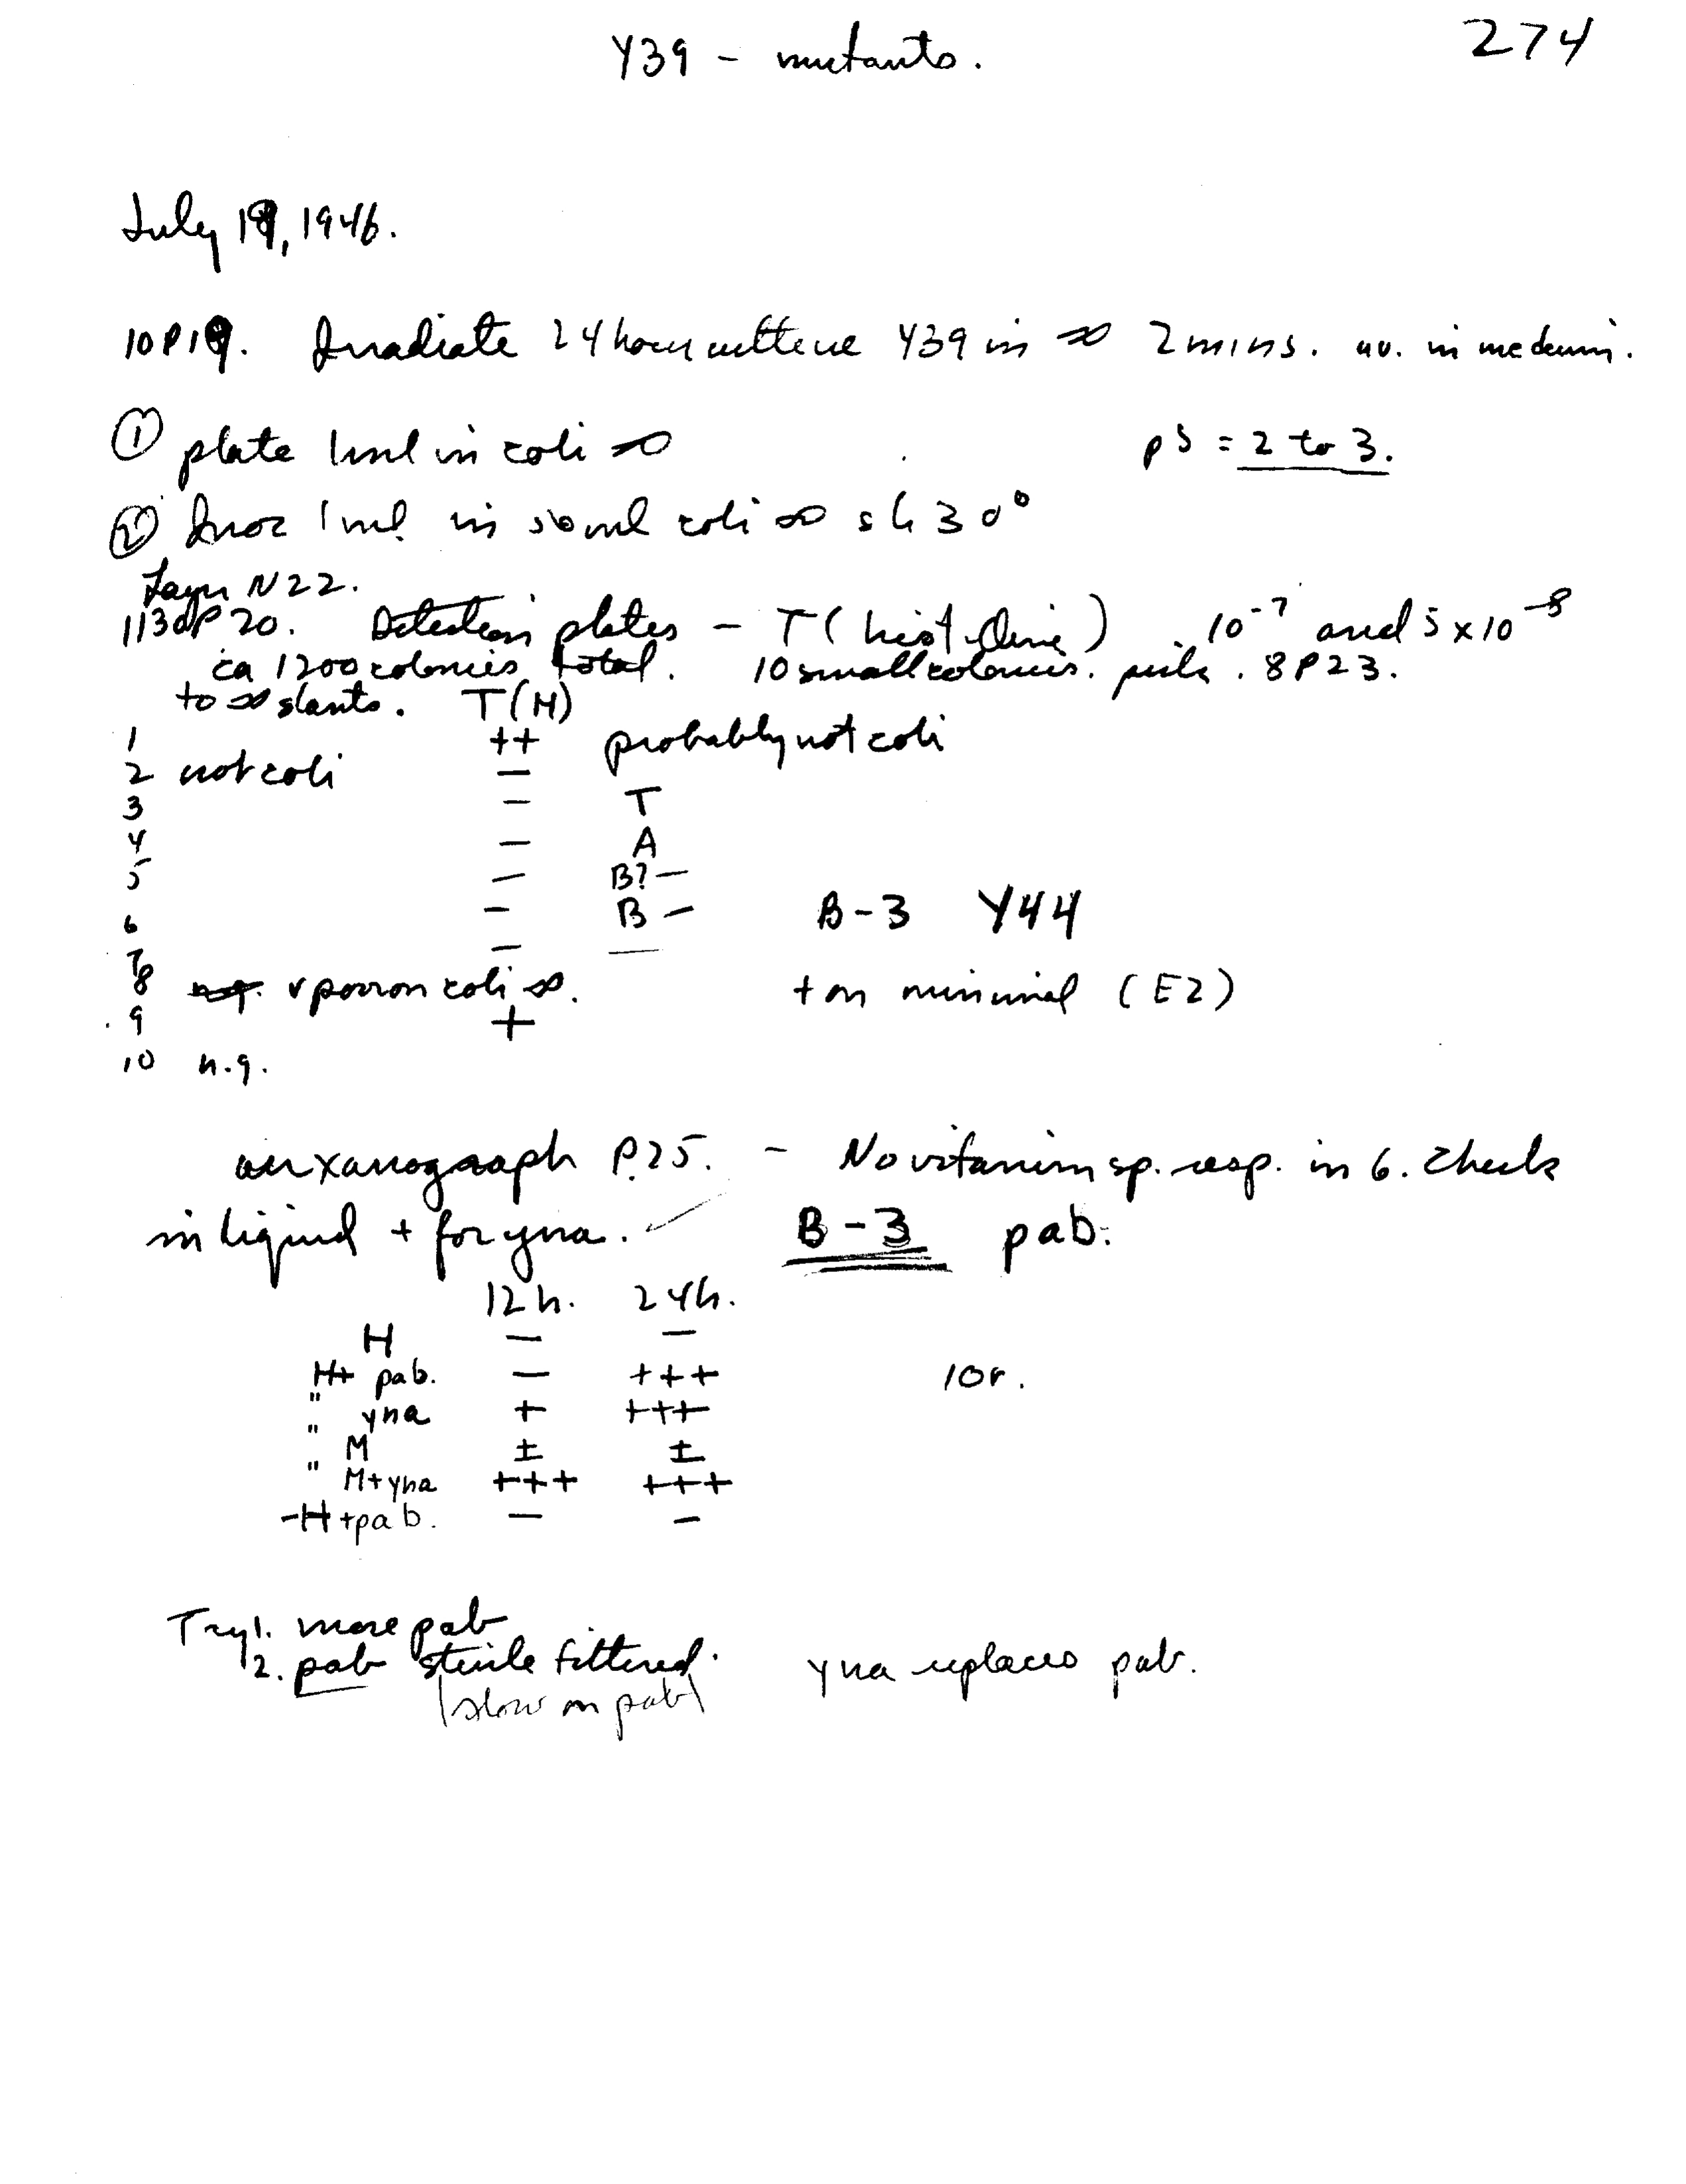 274
Y39 - mutants.
July 19, 1946.
10P19. Irradiate 24 hour culture Y39 in ∞ 2 mins. uv. in medium.
① plate 1ml in coli ∞ pS = 2 to 3.
② Inoc 1 ml. in 50 ml coli ∞ sh 30°
N22.
1130P20. Detection plates - T (histidine) 10⁻⁷ and 5 x 10⁻⁸
ca 1200 colonies total. 10 small colonies. pick. 8P23.
to ∞ slants. T(H)
1 ++ probably not coli
2 not coli —
3 — T
4 — A
5 — B? —
6 — B — B-3 Y44
7 — —
8 v poor on coli ∞. + on minimal (E2)
9 +
10 n.g.
auxanograph P25. - No vitamin sp. resp. in 6. Check
in liquid + for yna. ✓ B-3 pab.
12h. 24h.
H — —
H+ pab. — +++ 10r.
" yna + +++
" M ± ±
" M+yna +++ +++
-H +pab. — —
Try 1. more pab
2. pab sterile filtered. yna replaces pab.
(slow on pab)